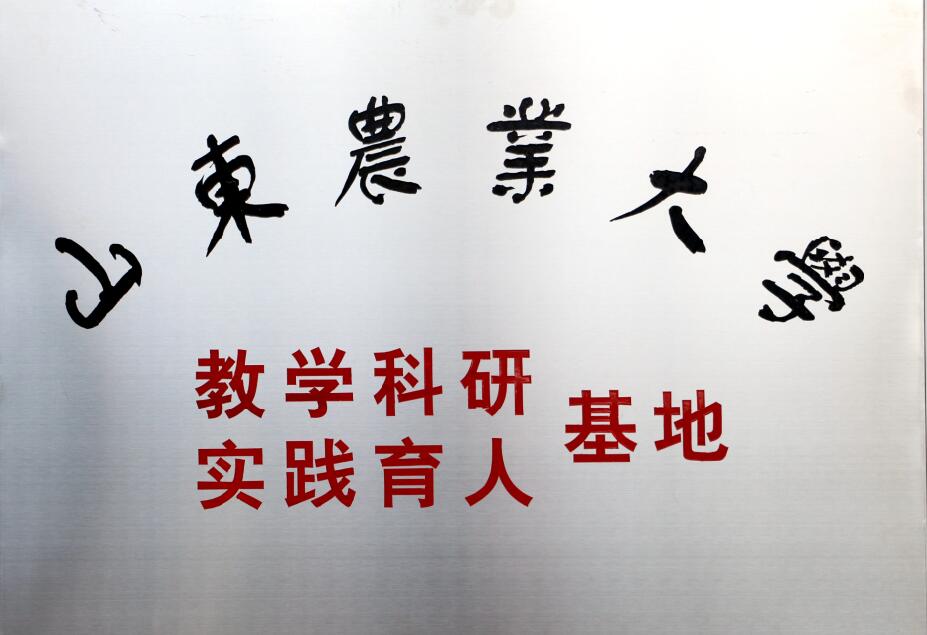 山東農業大學
教学科研
实践育人
基地